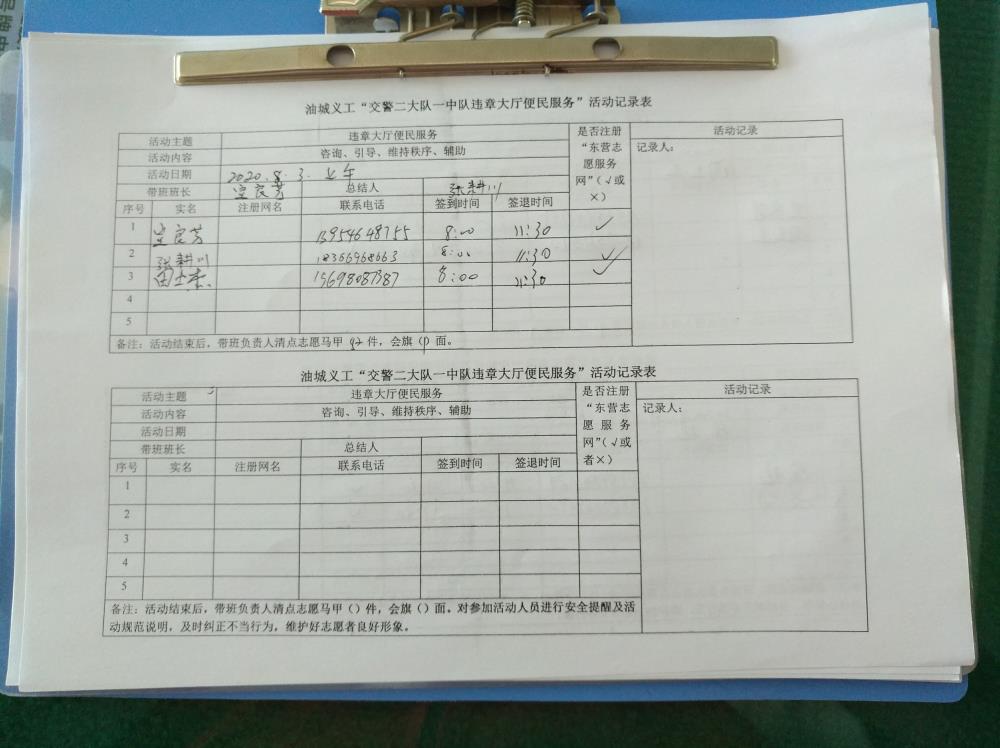 油城义工“交警二大队一中队违章大厅便民服务”活动记录表
活动主题 违章大厅便民服务 是否注册“东营志愿服务网”（√或×） 活动记录
活动内容 咨询、引导、维持秩序、辅助 记录人：
活动日期 2020.8.3.上午
带班班长 宫良芳 总结人 张耕川
序号 实名 注册网名 联系电话 签到时间 签退时间
1 宫良芳 13954648755 8:00 11:30 ✓
2 张耕川 18366968663 8:00 11:30 ✓
3 15698087387 8:00 11:30 ✓
4
5
备注：活动结束后，带班负责人清点志愿马甲 件，会旗 面。
油城义工“交警二大队一中队违章大厅便民服务”活动记录表
活动主题 违章大厅便民服务 是否注册“东营志愿服务网”（√或者×） 活动记录
活动内容 咨询、引导、维持秩序、辅助 记录人：
活动日期
带班班长 总结人
序号 实名 注册网名 联系电话 签到时间 签退时间
1
2
3
4
5
备注：活动结束后，带班负责人清点志愿马甲（）件，会旗（）面。对参加活动人员进行安全提醒及活
动规范说明，及时纠正不当行为，维护好志愿者良好形象。